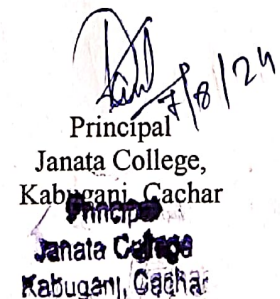 7/8/24
Principal
Janata College,
Kabuganj, Cachar
Principal
Janata College
Kabuganj, Cachar